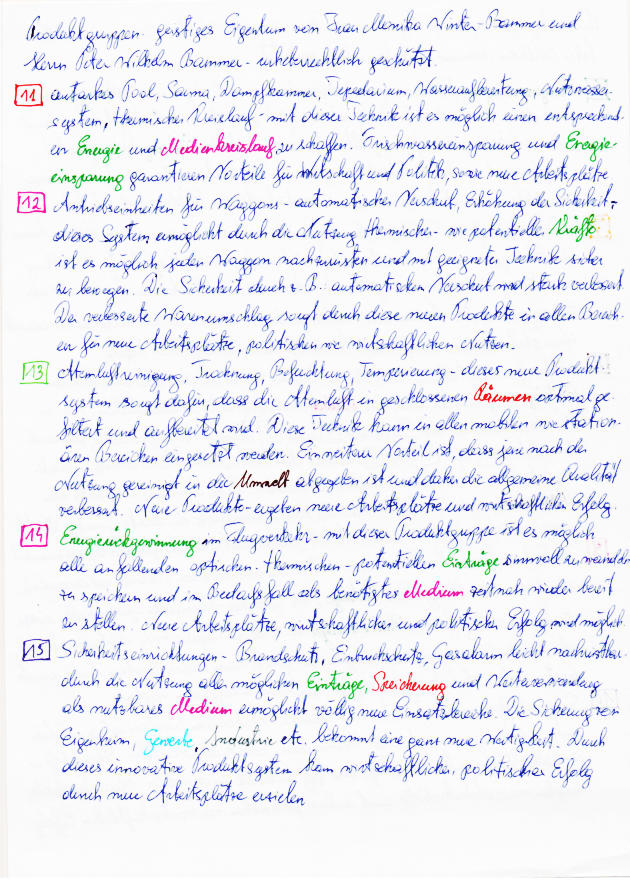 Produktgruppen - geistiges Eigentum von Frau Monika Winter-Bammer und
Herrn Peter Wilhelm Bammer - urheberrechtlich geschützt.
11 autarkes Pool, Sauna, Dampfkammer, Tepidarium, Wasseraufbereitung, Nutzwasser-
system, thermischer Kreislauf - mit dieser Technik ist es möglich einen entsprechend-
en Energie und Medienkreislauf zu schaffen. Frischwassereinsparung und Energie-
einsparung garantieren Vorteile für Wirtschaft und Politik, sowie neue Arbeitsplätze
12 Antriebseinheiten für Waggons - automatischer Verschub, Erhöhung der Sicherheit,
dieses System ermöglicht durch die Nutzung thermischer - wie potentieller Kräfte
ist es möglich jeden Waggon nachzurüsten und mit geeigneter Technik sicher
zu bewegen. Die Sicherheit durch z.B.: automatischen Verschub wird stark verbessert.
Der verbesserte Warenumschlag sorgt durch diese neuen Produkte in allen Bereich-
en für neue Arbeitsplätze, politischen wie wirtschaftlichen Nutzen.
13 Atemluftreinigung, Trocknung, Befeuchtung, Temperierung - dieses neue Produkt-
system sorgt dafür, dass die Atemluft in geschlossenen Räumen optimal ge-
filtert und aufbereitet wird. Diese Technik kann in allen mobilen wie station-
ären Bereichen eingesetzt werden. Ein weiterer Vorteil ist, dass je nach der
Nutzung gereinigt in die Umwelt abgegeben ist und daher die allgemeine Qualität
verbessert. Neue Produkte ergeben neue Arbeitsplätze und wirtschaftlichen Erfolg.
14 Energierückgewinnung im Flugverkehr - mit dieser Produktgruppe ist es möglich
alle anfallenden optischen - thermischen - potentiellen Einträge sinnvoll zu verwenden
zu speichern und im Bedarfsfall als benötigtes Medium zeitnah wieder bereit
zu stellen. Neue Arbeitsplätze, wirtschaftlicher und politischer Erfolg wird möglich.
15 Sicherheitseinrichtungen - Brandschutz, Einbruchschutz, Gasalarm leicht nachrüstbar
durch die Nutzung aller möglichen Einträge, Speicherung und Weiterverwendung
als nutzbares Medium ermöglicht völlig neue Einsatzbereiche. Die Sicherung von
Eigenheim, Gewerbe, Industrie etc. bekommt eine ganz neue Wertigkeit. Durch
dieses innovative Produktsystem kann wirtschaftlicher, politischer Erfolg
durch neue Arbeitsplätze erzielen